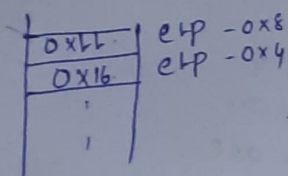 0x11 elp -0x8
0x16 elp -0x4